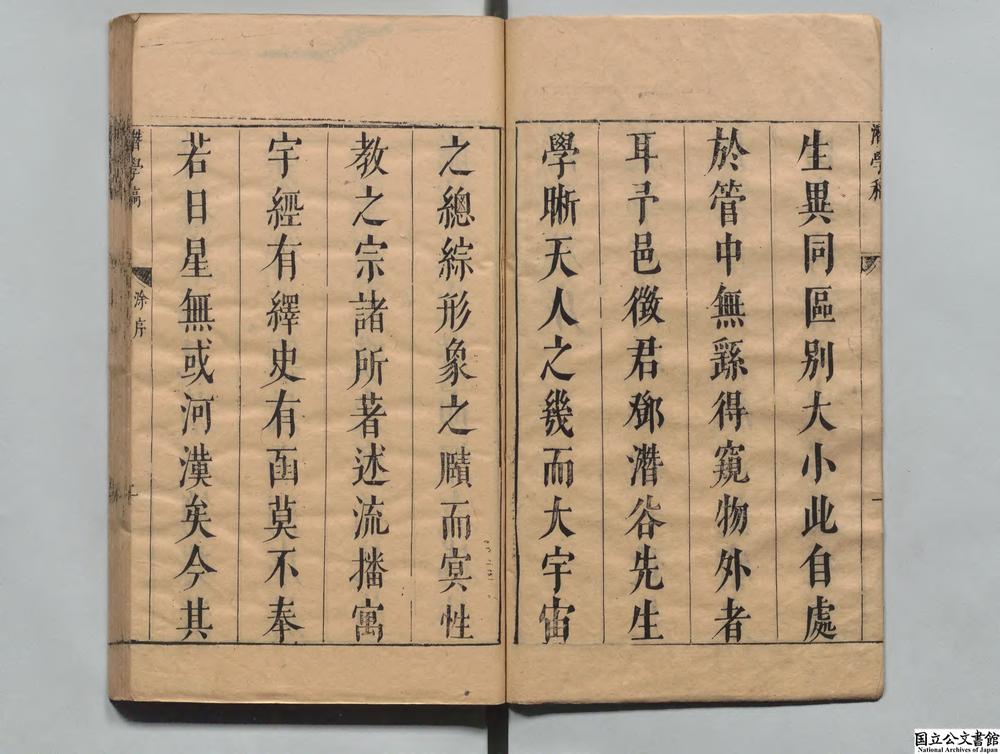 潛學稿
生異同區別大小此自處
於管中無繇得窺物外者
耳予邑徵君鄧潛谷先生
學晰天人之幾而大宇宙
之總綜形象之賾而冥性
教之宗諸所著述流播寓
宇經有繹史有函莫不奉
若日星無或河漢矣今其
潛學稿
涂序
国立公文書館
National Archives of Japan